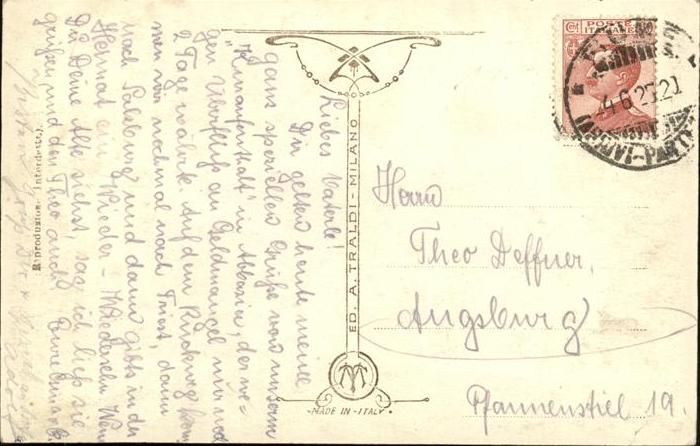 Liebes Vaterle!
Dir gelten heute meine
ganz speziellen Grüße von unserm
"Zwangsaufenthalt" in Abbazia, der we=
gen Überfluß an Geldmangel nur noch
2 Tage währt. Auf dem Rückweg kom
men wir nochmal nach Triest, dann
nach Salzburg und dann gehts in der
Heimat ein Wieder-Wiedersehn. Wenn
Du Deine Alte siehst, sag ich ließ sie
grüßen und den Theo auch. Eure
Reproduzione interdetta.
ED. A. TRALDI - MILANO
MADE IN ITALY
POSTE
ITALIANE
4.6.25.21
Herrn
Theo Deffner,
Augsburg
Pfannenstiel 19.